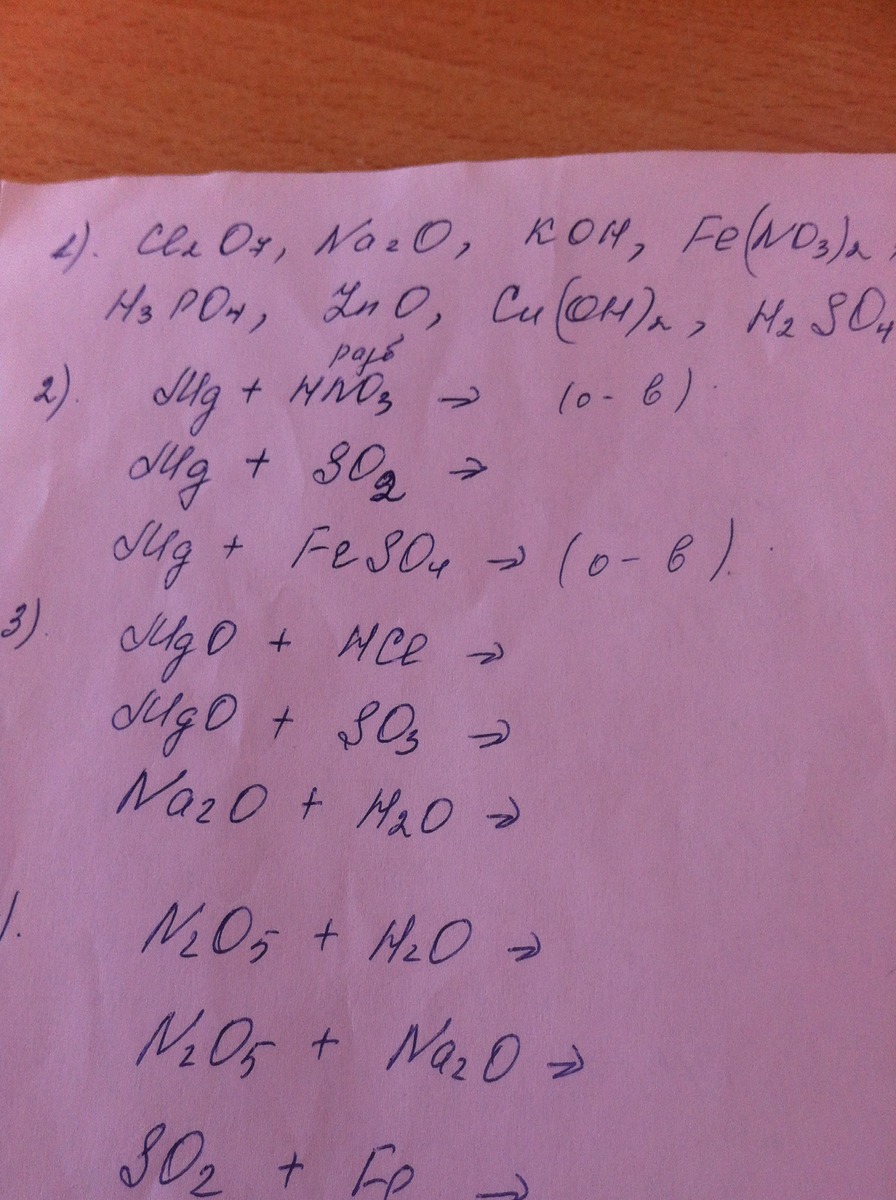 1). Cl₂O₇, Na₂O, KOH, Fe(NO₃)₂,
H₃PO₄, ZnO, Cu(OH)₂, H₂SO₄
разб
2). Mg + HNO₃ → (о-в).
Mg + SO₂ →
Mg + FeSO₄ → (о-в).
3). MgO + HCl →
MgO + SO₃ →
Na₂O + H₂O →
). N₂O₅ + H₂O →
N₂O₅ + Na₂O →
SO₂ + Fe →